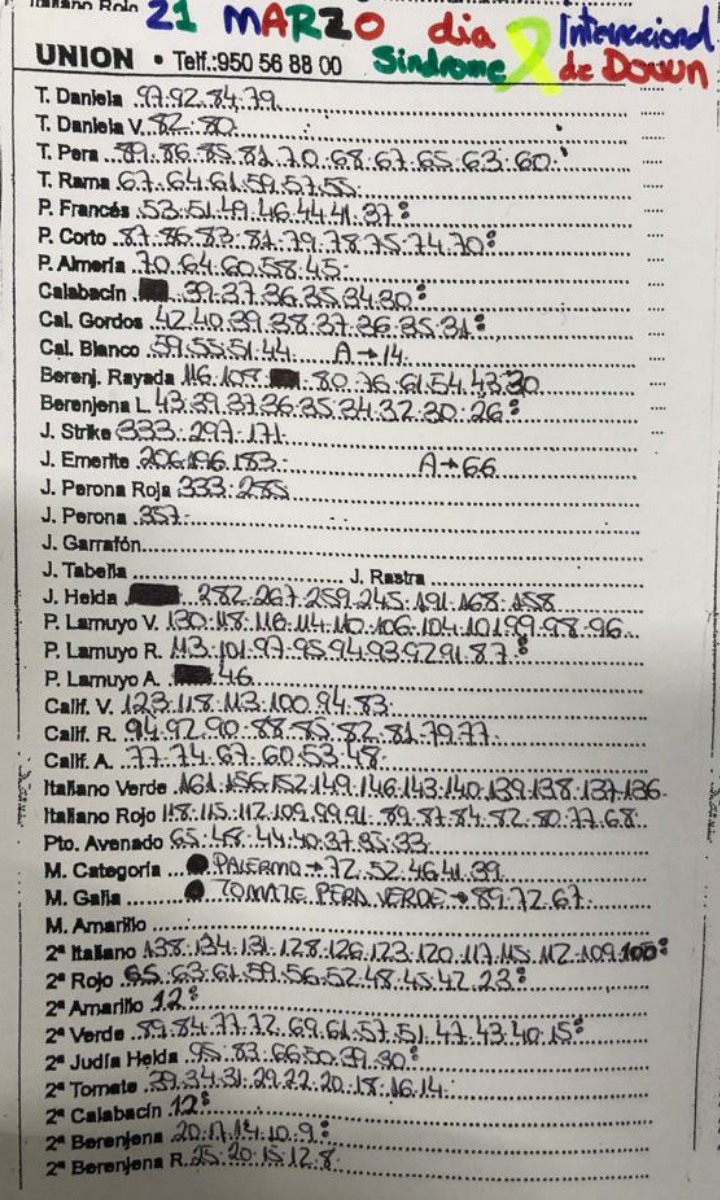 Italiano Rojo
21 MARZO dia Internacional
UNION • Telf.:950 56 88 00 Sindrome de Down
T. Daniela 97.92.84.79
T. Daniela V. 82.80
T. Pera 89.86.85.81.70.68.67.65.63.60.
T. Rama 67.64.61.59.57.55.
P. Francés 53.51.49.46.44.41.37:
P. Corto 87.86.83.81.79.78.75.74.70:
P. Almería 70.64.60.58.45.
Calabacín 39.37.36.35.34.30:
Cal. Gordos 42.40.39.38.37.36.35.31:
Cal. Blanco 59.55.51.44. A→14.
Berenj. Rayada 116.108. 80.76.61.54.43.30
Berenjena L. 43.39.37.36.35.34.32.30.26:
J. Strike 333.297.171.
J. Emerite 206.196.183. A→66
J. Perona Roja 333.285
J. Perona 357.
J. Garrafón
J. Tabella J. Rastra
J. Helda 282.267.259.245.191.168.158
P. Lamuyo V. 130.118.116.114.110.106.104.101.99.98.96
P. Lamuyo R. 113.101.97.95.94.93.92.91.87:
P. Lamuyo A. 46
Calif. V. 123.118.113.100.94.83.
Calif. R. 94.92.90.88.85.82.81.79.77.
Calif. A. 77.74.67.60.53.48.
Italiano Verde 161.156.152.149.146.143.140.139.138.137.136.
Italiano Rojo 118.115.112.109.99.91.89.87.84.82.80.77.68.
Pto. Avenado 65.48.44.40.37.35.33.
M. Categoría PALERMO→72.52.46.41.39.
M. Galia TOMATE PERA VERDE→89.72.67.
M. Amarillo
2ª Italiano 138.134.131.128.126.123.120.117.115.112.109.100:
2ª Rojo 65.63.61.59.56.52.48.45.42.23:
2ª Amarillo 12:
2ª Verde 89.84.77.72.69.61.57.51.47.43.40.15:
2ª Judía Helda 95.83.66.50.39.30:
2ª Tomate 39.34.31.29.22.20.18.16.14.
2ª Calabacín 12:
2ª Berenjena 20.17.14.10.9:
2ª Berenjena R. 25.20.15.12.8.